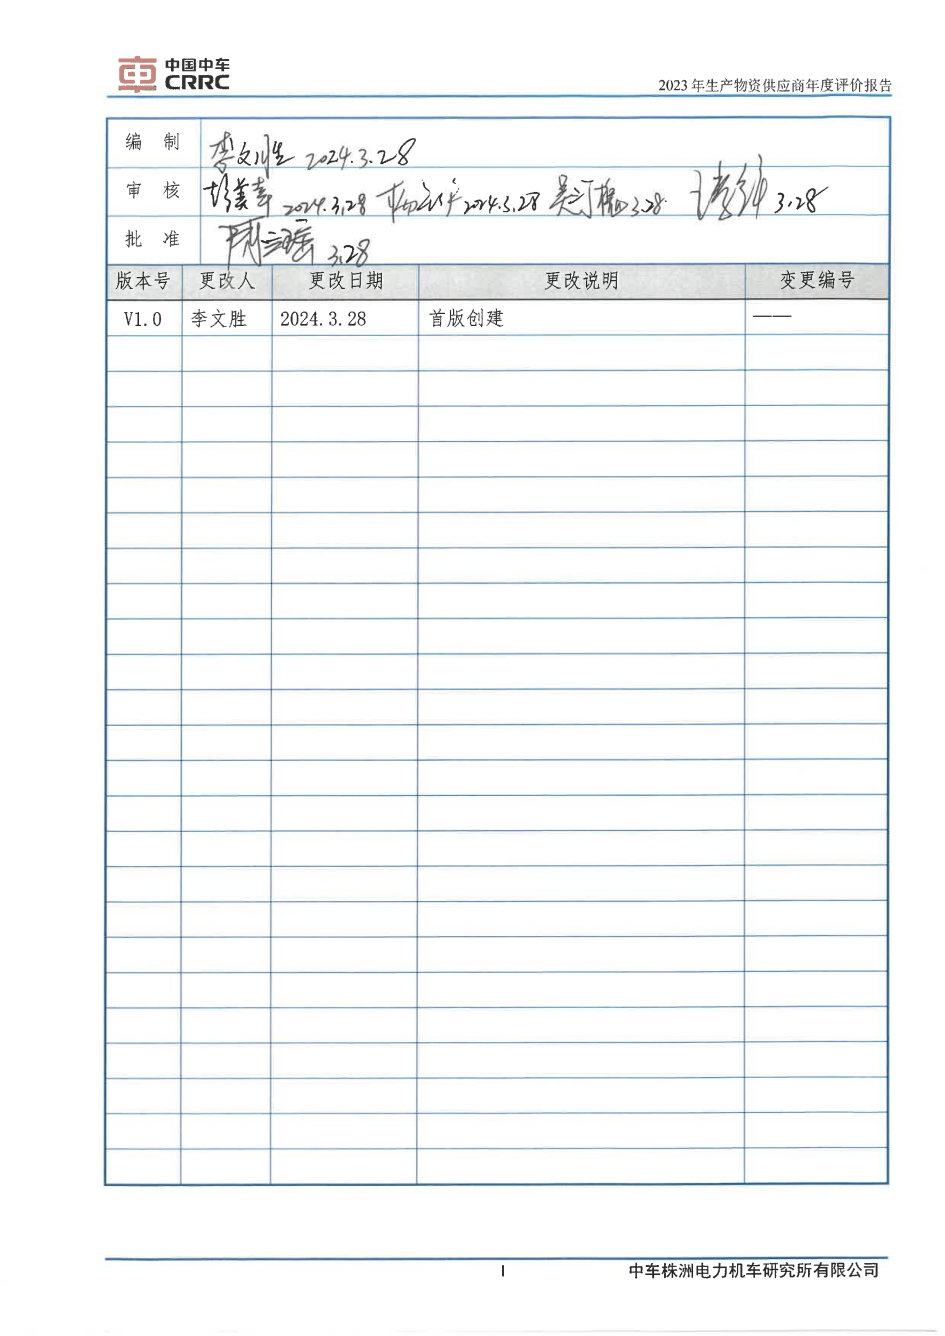 中国中车
CRRC
2023年生产物资供应商年度评价报告
编 制 李文胜 2024.3.28
审 核 2024.3.28 2024.3.28 3.28 3.28
批 准 3.28
版本号 更改人 更改日期 更改说明 变更编号
V1.0 李文胜 2024.3.28 首版创建 ——
I 中车株洲电力机车研究所有限公司